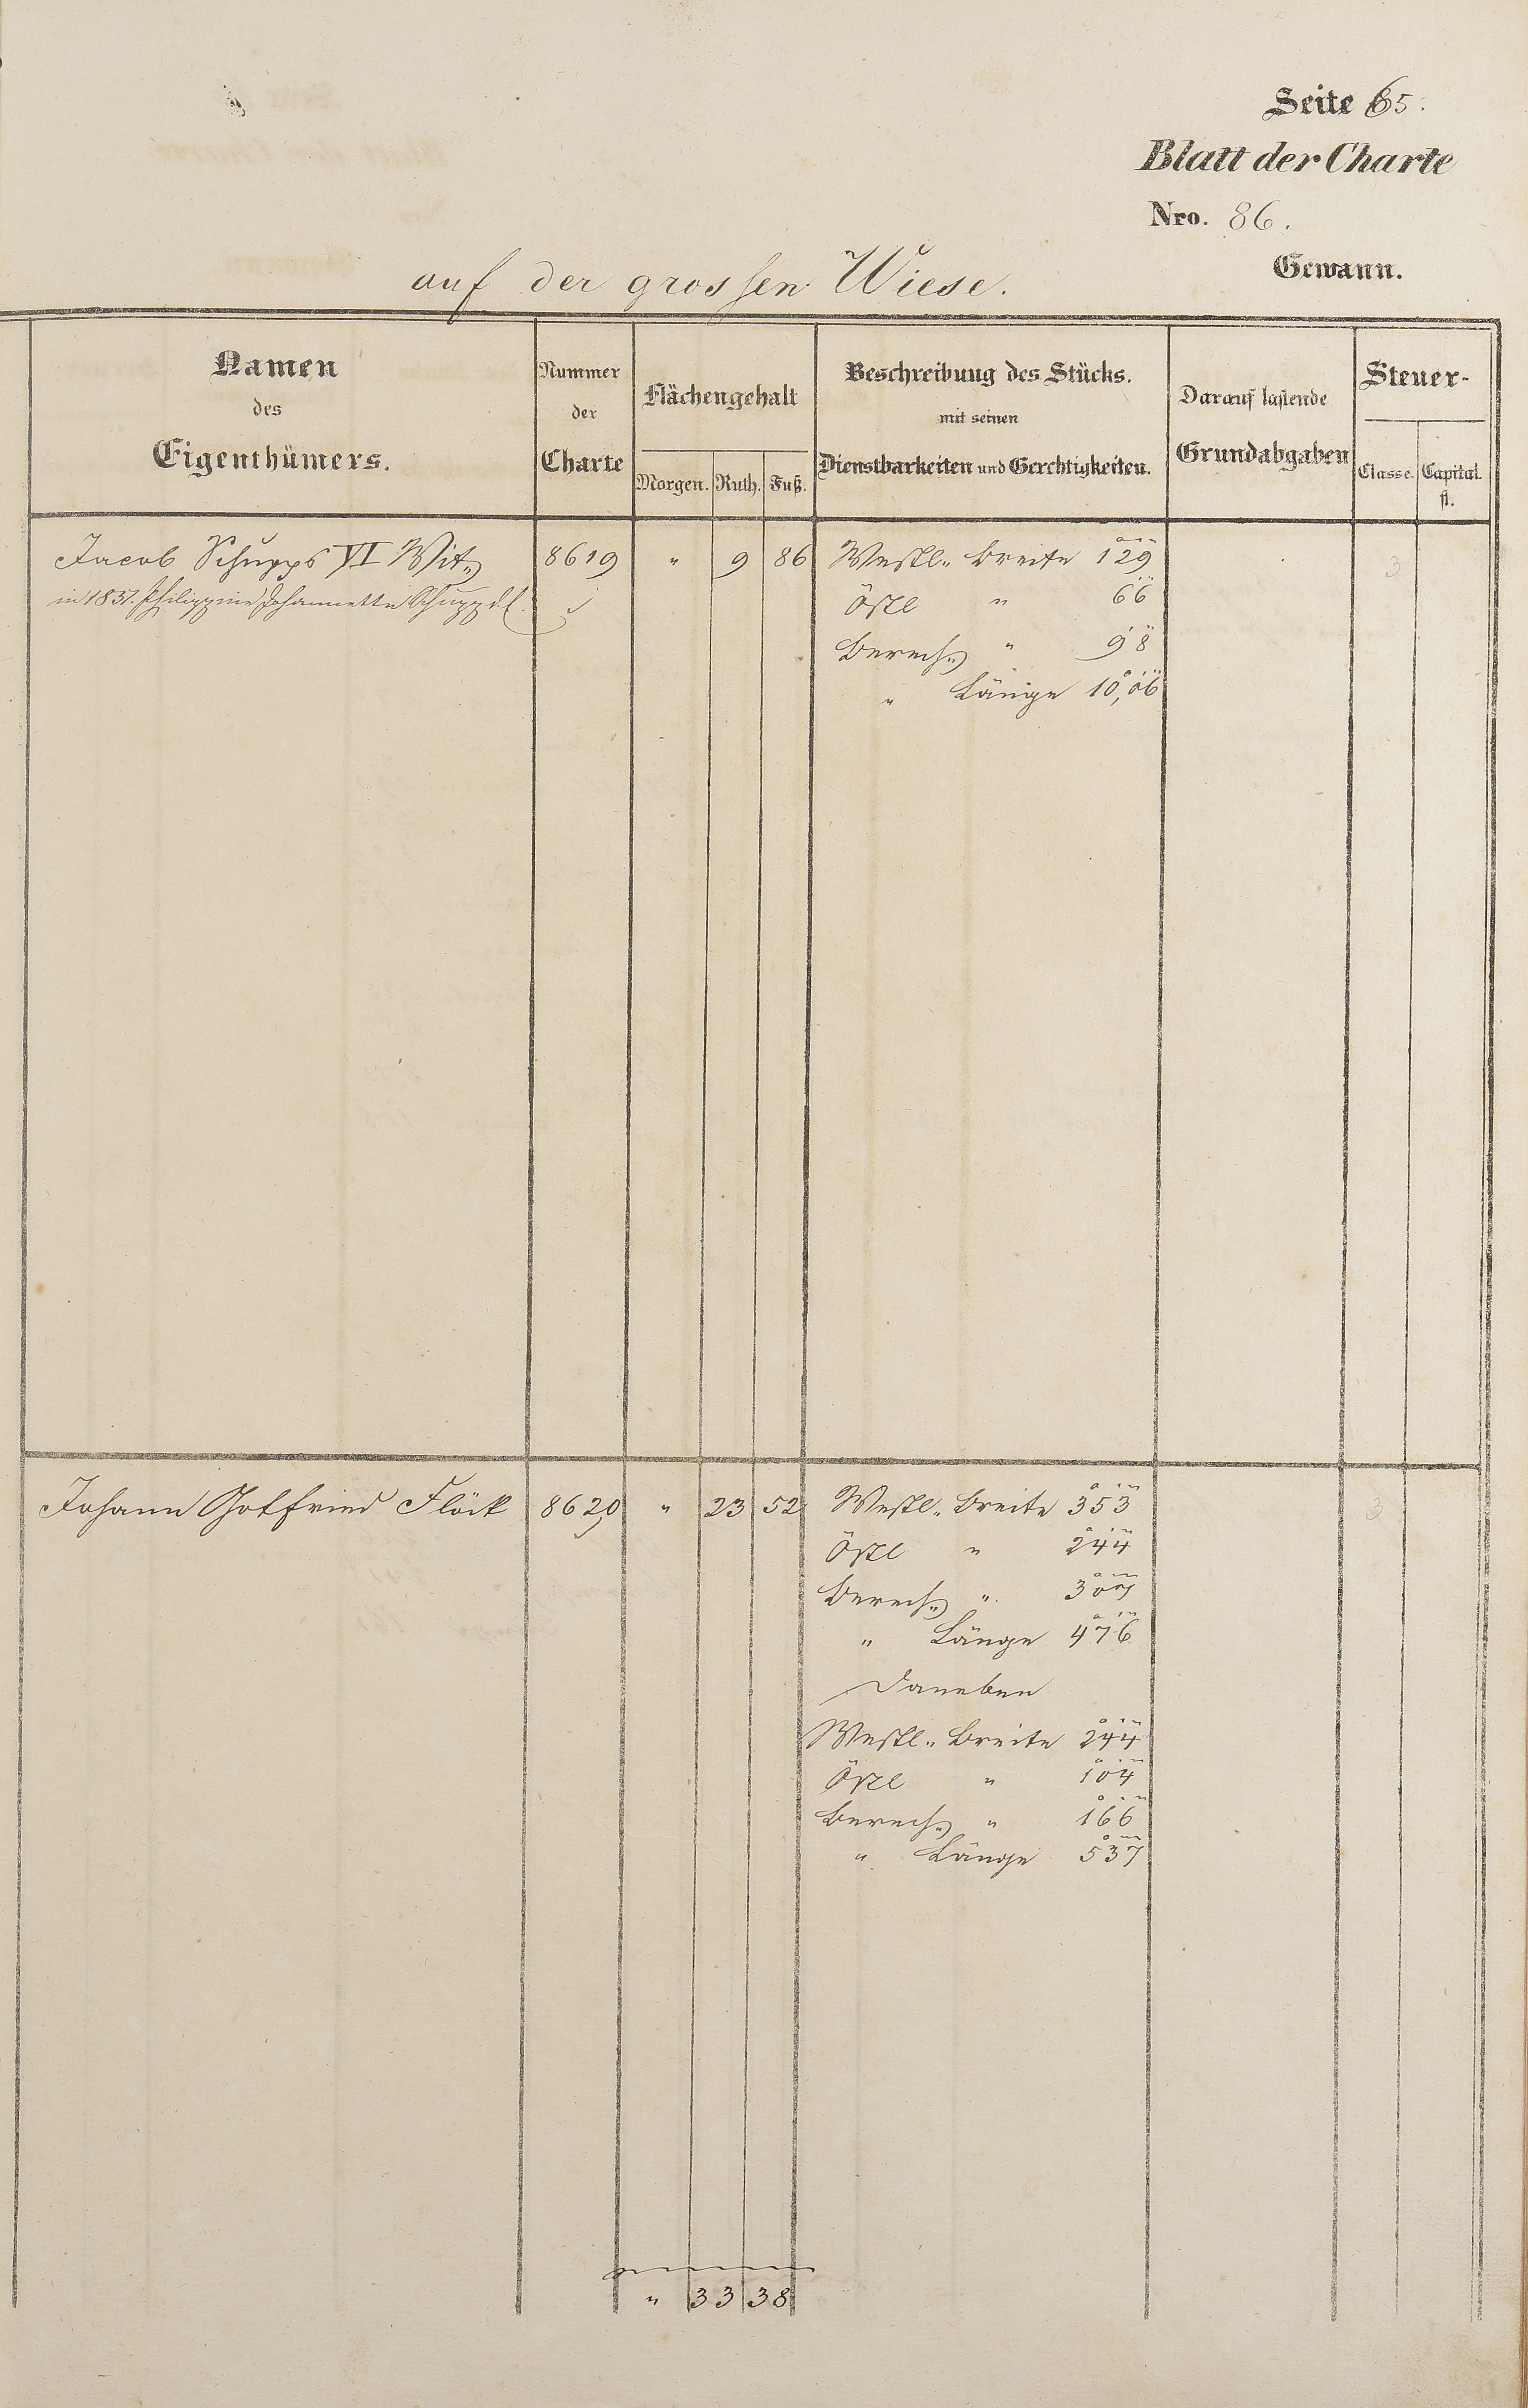 Seite 65.
Blatt der Charte
Nro. 86.
Gewann.
auf der grossen Wiese.
Namen des Eigenthümers.
Nummer der Charte
Flächengehalt
Morgen. Ruth. Fuß.
Beschreibung des Stücks.
mit seinen
Dienstbarkeiten und Gerechtigkeiten.
Darauf lastende
Grundabgaben
Steuer-
Classe. Capital.
fl.
Jacob Schupps VI Wit. 8619 " 9 86 Westl. Breite 129 3
in 1837. Philippine Johannette Schupp
Östl " 66
Berech. " 98
" Länge 10,06
Johann Gottfried Flöck 8620 " 23 52 Westl. Breite 353 3
Östl " 244
Berech. "
" Länge 476
Daneben
Westl. Breite 244
Östl " 104
Berech. " 166
" Länge 537
" 33 38